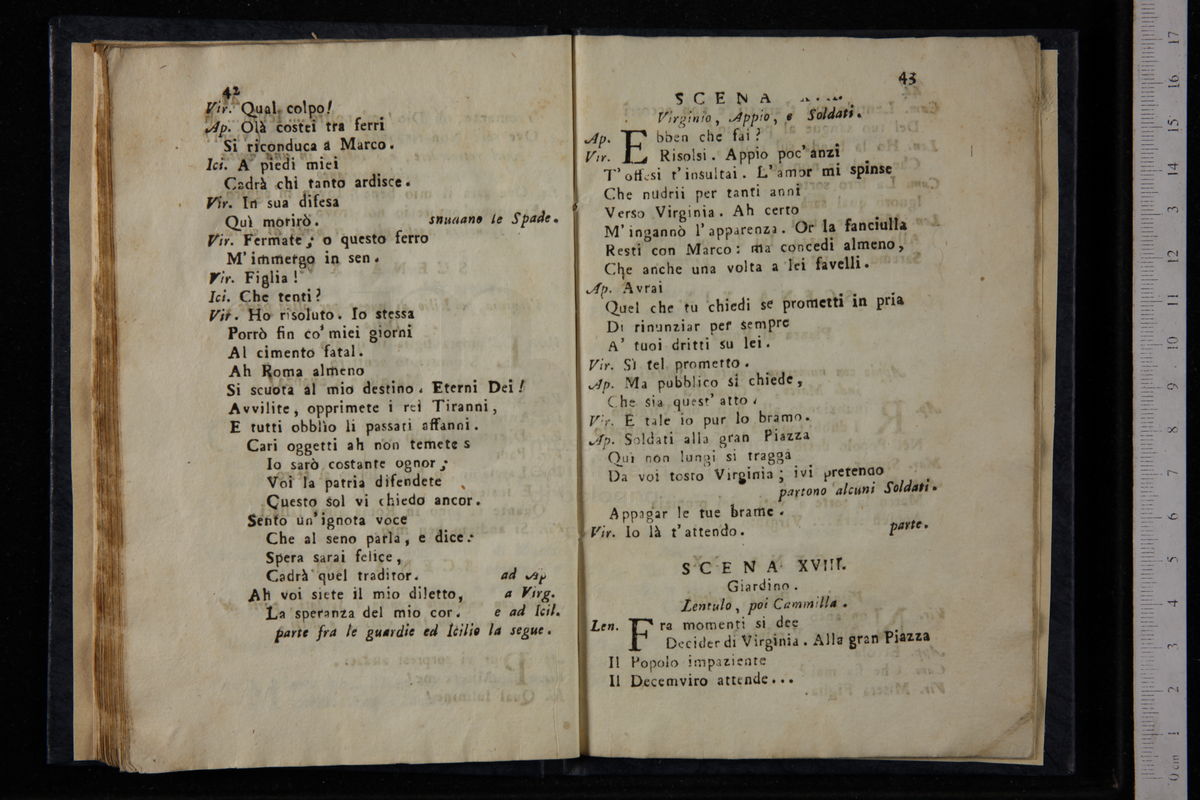 42
Vir. Qual colpo!
Ap. Olà costei tra ferri
Si riconduca a Marco.
Ici. A piedi miei
Cadrà chi tanto ardisce.
Vir. In sua difesa
Quì morirò. snudano le Spade.
Vir. Fermate; o questo ferro
M'immergo in sen.
Vir. Figlia!
Ici. Che tenti?
Vir. Ho risoluto. Io stessa
Porrò fin co' miei giorni
Al cimento fatal.
Ah Roma almeno
Si scuota al mio destino. Eterni Dei!
Avvilite, opprimete i rei Tiranni,
E tutti obblio li passati affanni.
Cari oggetti ah non temete s
Io sarò costante ognor;
Voi la patria difendete
Questo sol vi chiedo ancor.
Sento un'ignota voce
Che al seno parla, e dice:
Spera sarai felice,
Cadrà quel traditor. ad Ap
Ah voi siete il mio diletto, a Virg.
La speranza del mio cor. e ad Icil.
parte fra le guardie ed Icilio la segue.
43
SCENA
Virginio, Appio, e Soldati.
Ap. Ebben che fai?
Vir. Risolsi. Appio poc'anzi
T'offesi t'insultai. L'amor mi spinse
Che nudrii per tanti anni
Verso Virginia. Ah certo
M'ingannò l'apparenza. Or la fanciulla
Resti con Marco: ma concedi almeno,
Che anche una volta a lei favelli.
Ap. Avrai
Quel che tu chiedi se prometti in pria
Di rinunziar per sempre
A' tuoi dritti su lei.
Vir. Sì tel prometto.
Ap. Ma pubblico si chiede,
Che sia quest' atto.
Vir. E tale io pur lo bramo.
Ap. Soldati alla gran Piazza
Qui non lungi si tragga
Da voi tosto Virginia; ivi pretendo
partono alcuni Soldati.
Appagar le tue brame.
Vir. Io là t'attendo. parte.
SCENA XVIII.
Giardino.
Lentulo, poi Cammilla.
Len. Fra momenti si dee
Decider di Virginia. Alla gran Piazza
Il Popolo impaziente
Il Decemviro attende...